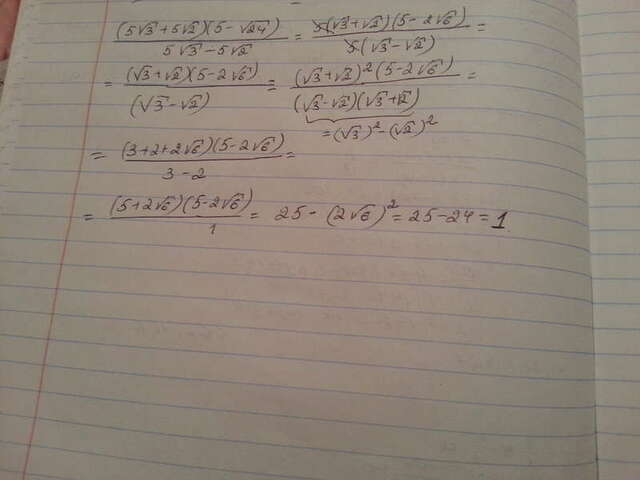 (5√3+5√2)(5-√24) / 5√3-5√2 = 5(√3+√2)(5-2√6) / 5(√3-√2) =
= (√3+√2)(5-2√6) / (√3-√2) = (√3+√2)²(5-2√6) / (√3-√2)(√3+√2) =
=(√3)²-(√2)²
= (3+2+2√6)(5-2√6) / 3-2 =
= (5+2√6)(5-2√6) / 1 = 25-(2√6)² = 25-24 = 1